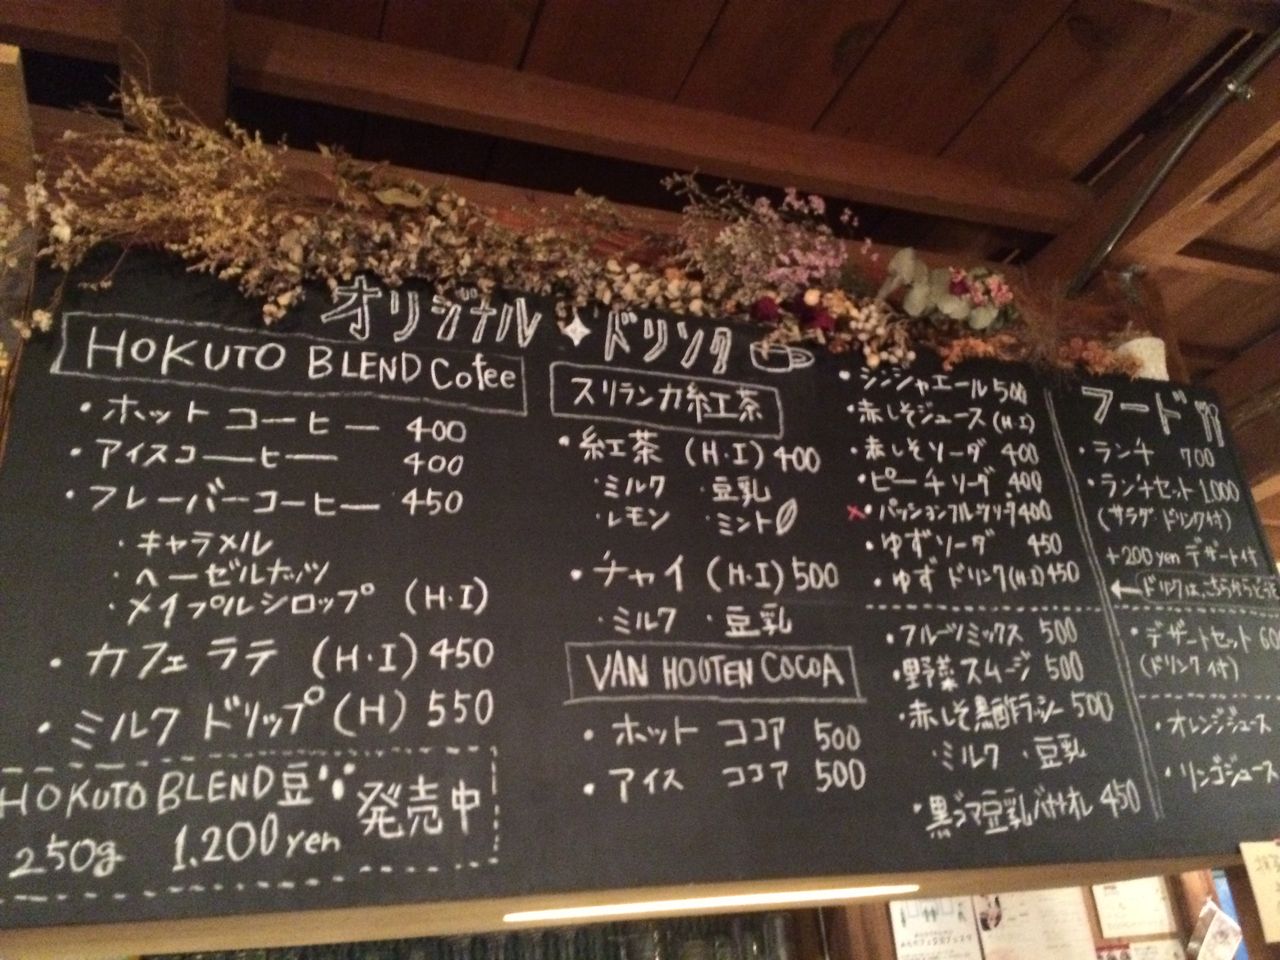 オリジナル ドリンク
HOKUTO BLEND Cofee
・ホット コーヒー 400
・アイスコーヒー 400
・フレーバーコーヒー 450
・キャラメル
・ヘーゼルナッツ
・メイプルシロップ (H・I)
・カフェ ラテ (H・I) 450
・ミルク ドリップ (H) 550
HOKUTO BLEND豆 発売中
250g 1.200yen
スリランカ紅茶
・紅茶 (H・I) 400
・ミルク ・豆乳
・レモン ・ミント
・チャイ (H・I) 500
・ミルク ・豆乳
VAN HOUTEN COCOA
・ホット ココア 500
・アイス ココア 500
・ジンジャエール 500
・赤しそジュース (H・I)
・赤しそソーダ 400
・ピーチソーダ 400
×・パッションフルーツソーダ400
・ゆずソーダ 450
・ゆず ドリンク(H・I) 450
・フルーツミックス 500
・野菜スムージ 500
・赤しそ黒酢ラッシー 500
・ミルク ・豆乳
・黒ゴマ豆乳バナナオレ 450
フード
・ランチ 700
・ランチセット 1,000
(サラダ ドリンク付)
+200yen デザート付
←ドリンクはこちらからどうぞ
・デザートセット
(ドリンク付)
・オレンジジュース
・リンゴジュース